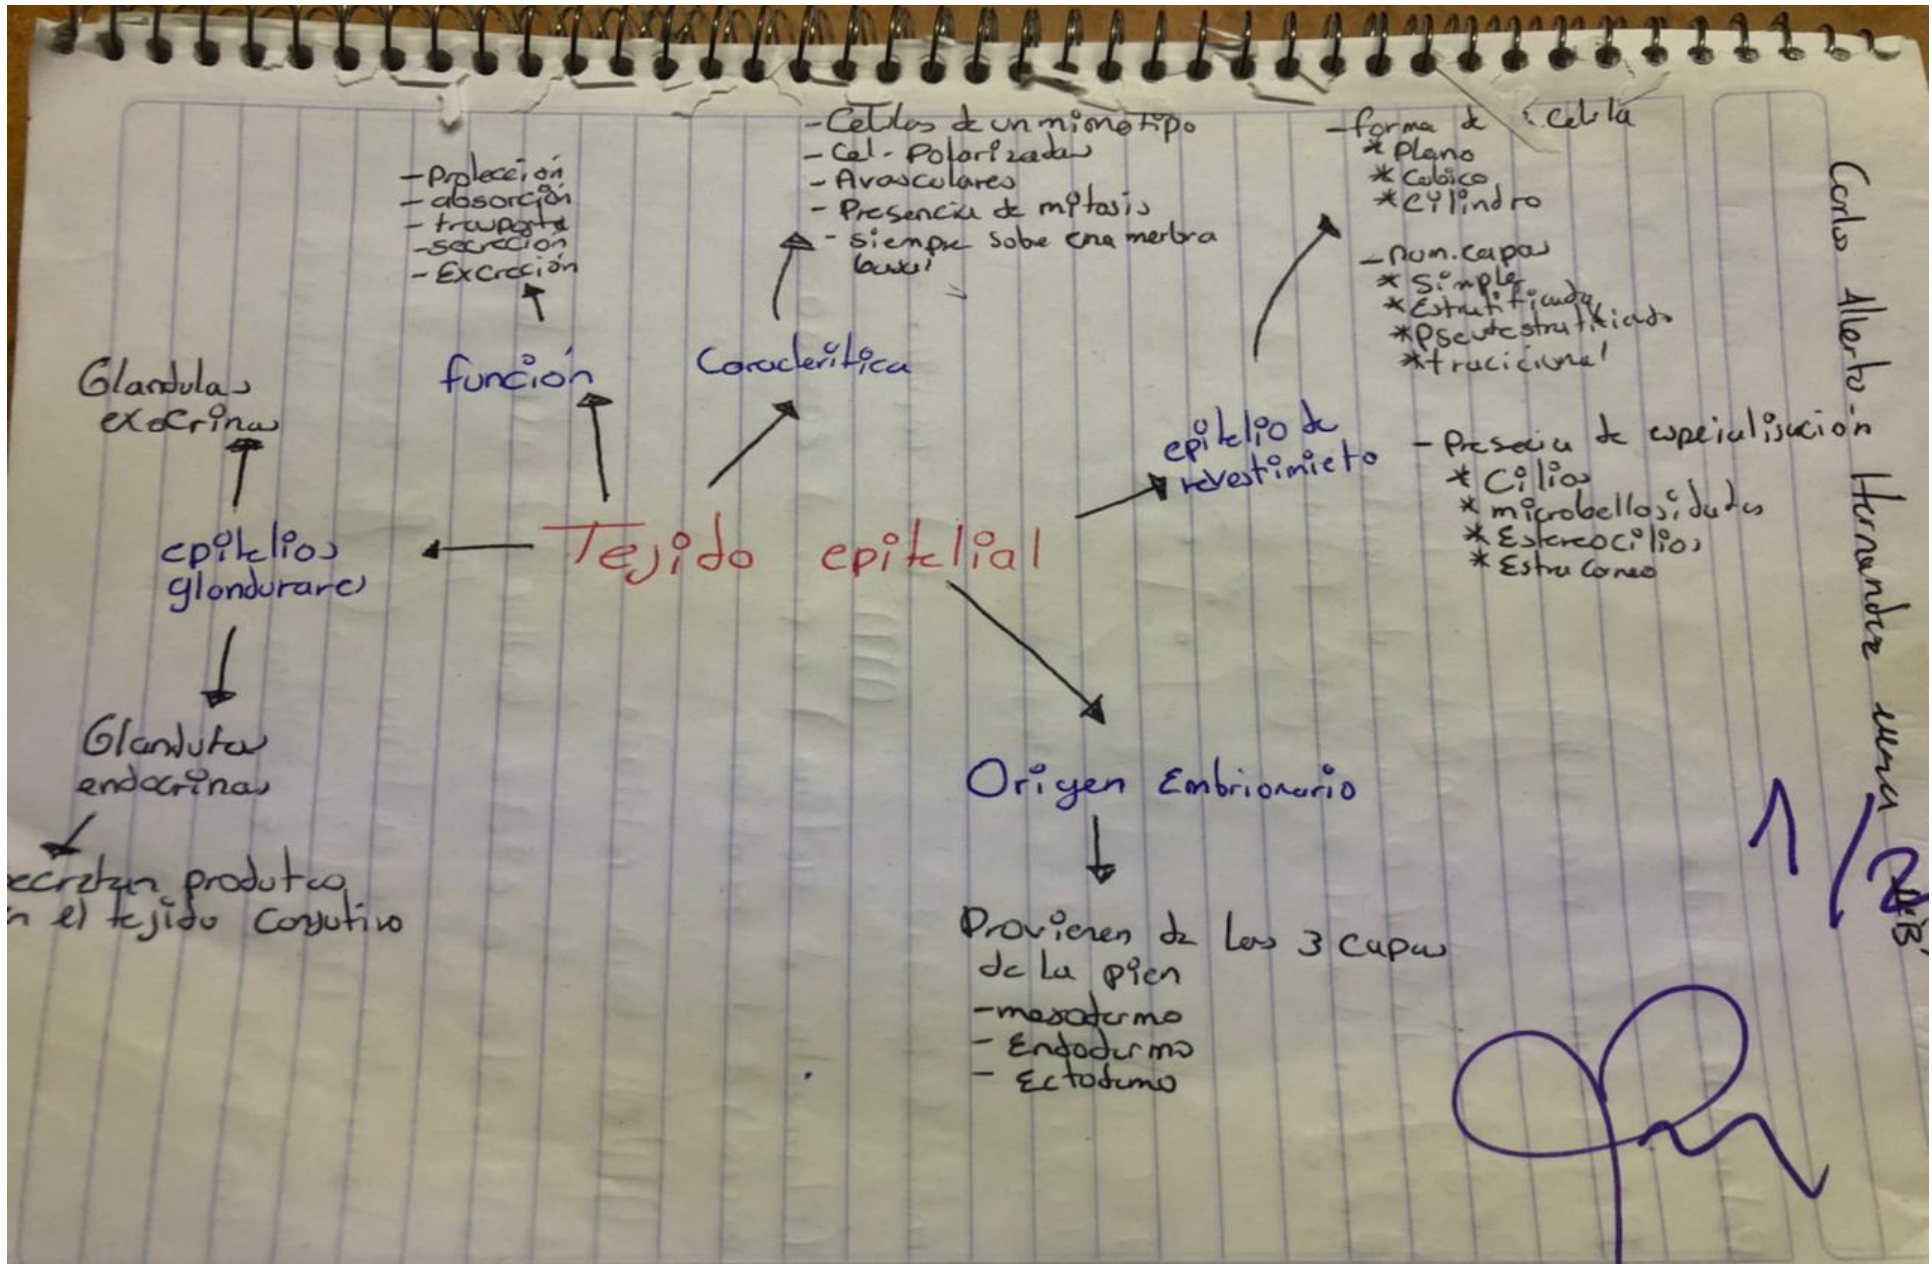 - Proteción
- absorción
- trasporte
- secreción
- Excreción
función
- Celulas de un mismo tipo
- Cel. Polarizadas
- Avasculares
- Presencia de mitosis
- siempre sobe una merbra
basal
Caracterítica
- forma de celula
* Plano
* Cubico
* Cilindro
- num. capas
* Simple
* Estratificado
* Pseutestratificado
* tracicional
- Presecia de espeialisación
* Cilios
* microbellosidades
* Estereocilios
* Estra Corneo
epitelio de
revestimieto
Tejido epitelial
epitelios
glondurares
Glandulas
exocrinas
Glandulas
endocrinas
ecretan produtos
n el tejido Conjutivo
Origen Embrionario
Provienen de las 3 capas
de la pien
- mesodermo
- Endodermo
- Ectodemo
Carlos Alberto Hernandez
1/2